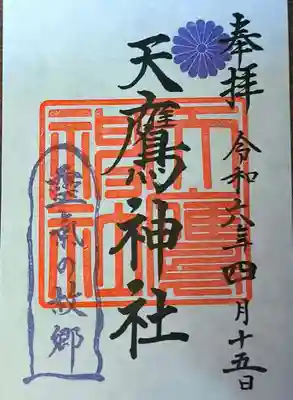 奉拝
令和六年四月十五日
天鷹神社
天鷹神社
霊気の故郷